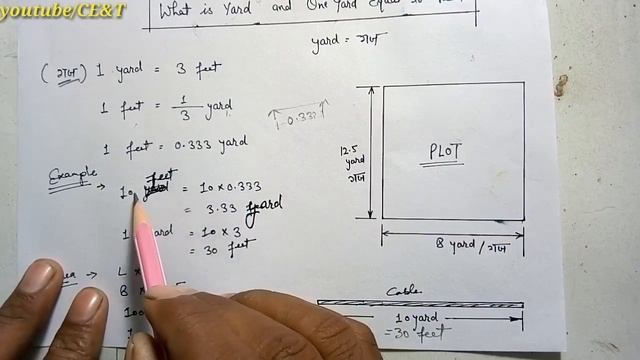 youtube/CE&T
What is Yard and One Yard Equal to
yard = गज
(गज) 1 yard = 3 feet
1 feet = 1/3 yard
0.333
1 feet = 0.333 yard
Example
→ 10 feet = 10 × 0.333
= 3.33 yard
1 yard = 10 × 3
= 30 feet
→ L ×
B
100
12.5
yard
गज
PLOT
8 yard/गज
Cable
10 yard
= 30 feet